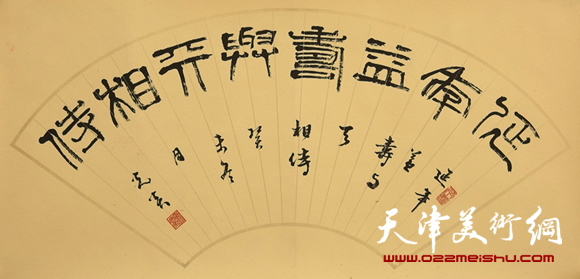 延年益壽與天相侍
延年
益
壽与
天
相侍
癸
未冬
月
天津美術網
www.022meishu.com